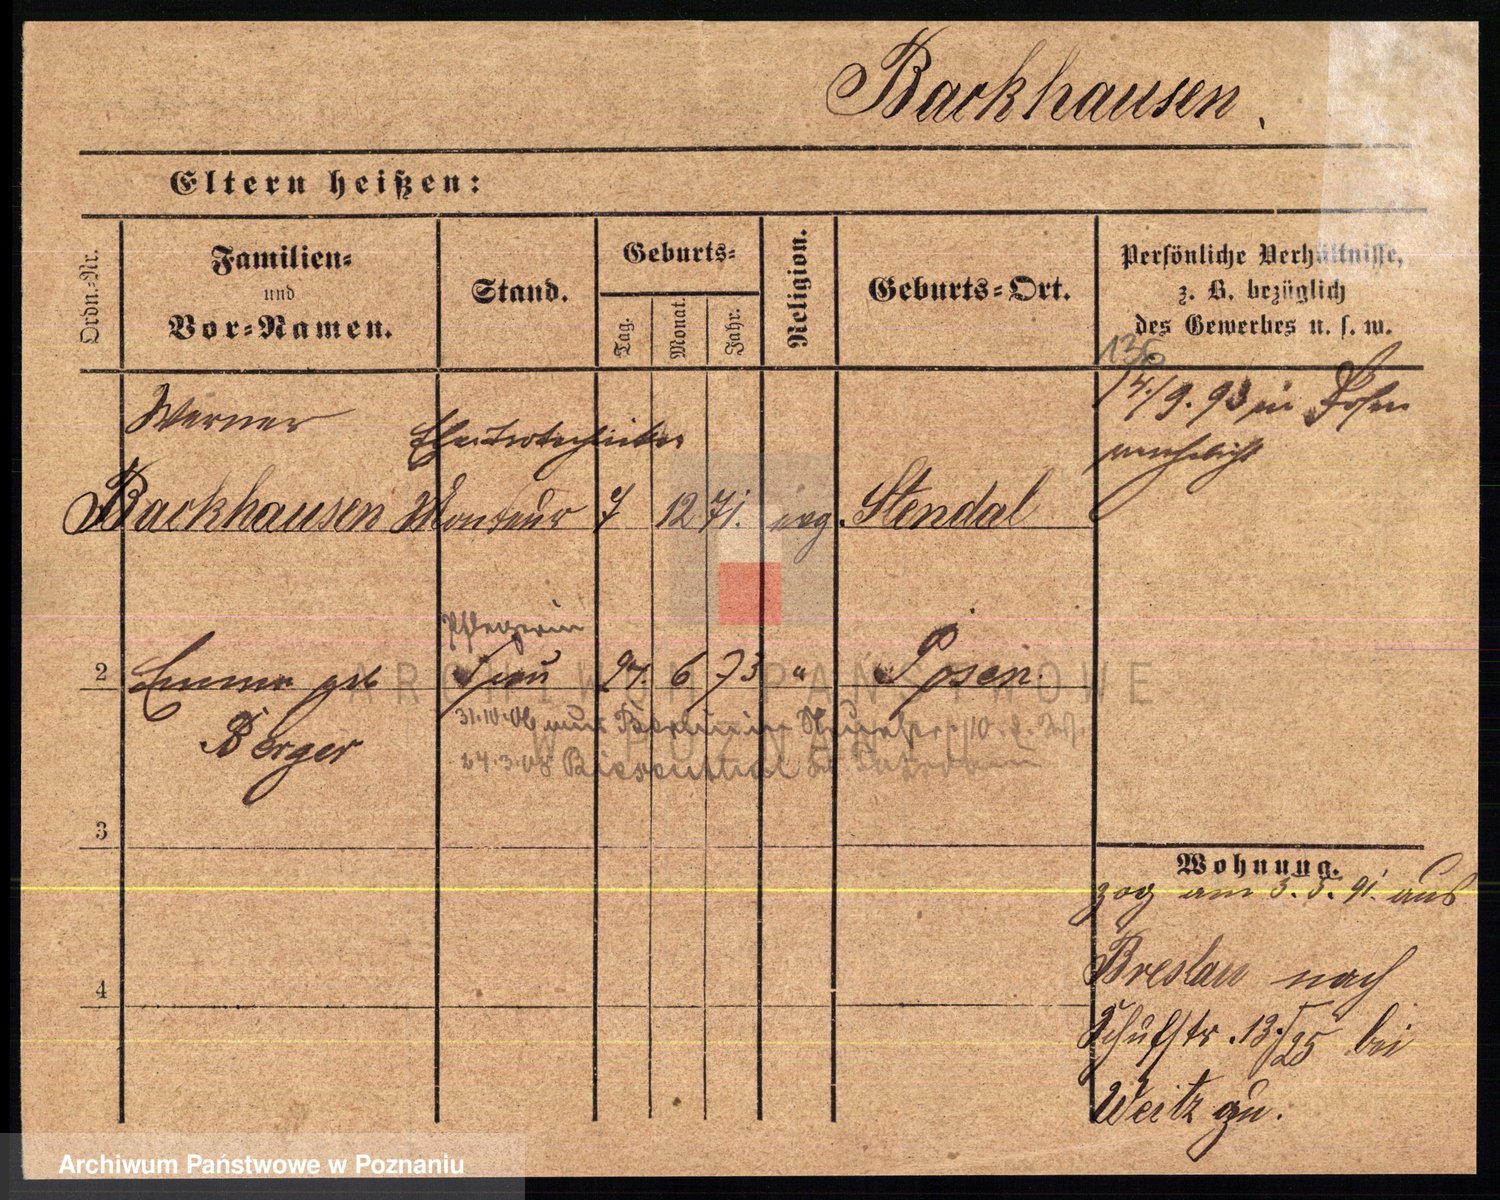 Backhausen.
Eltern heißen:
Ordn.-Nr.
Familien-
und
Vor-Namen.
Stand.
Geburts-
Tag.
Monat.
Jahr.
Religion.
Geburts-Ort.
Persönliche Verhältnisse,
z. B. bezüglich
des Gewerbes u. s. w.
136
14/9. 93 in Posen
verehelicht
Werner
Electrotechniker
Backhausen Monteur 7 12 71. evg. Stendal
Pflegerin
2 Emma geb Frau 27. 6 73 " Posen.
Berger
31.10.06 aus Berlin in
24.3.08 Biesenthal
3
4
Wohnung.
zog am 3. 5. 91. aus
Breslau nach
Schulstr. 13./25 bei
Weitz zu.
ARCHIWUM PAŃSTWOWE
W POZNANIU
Archiwum Państwowe w Poznaniu